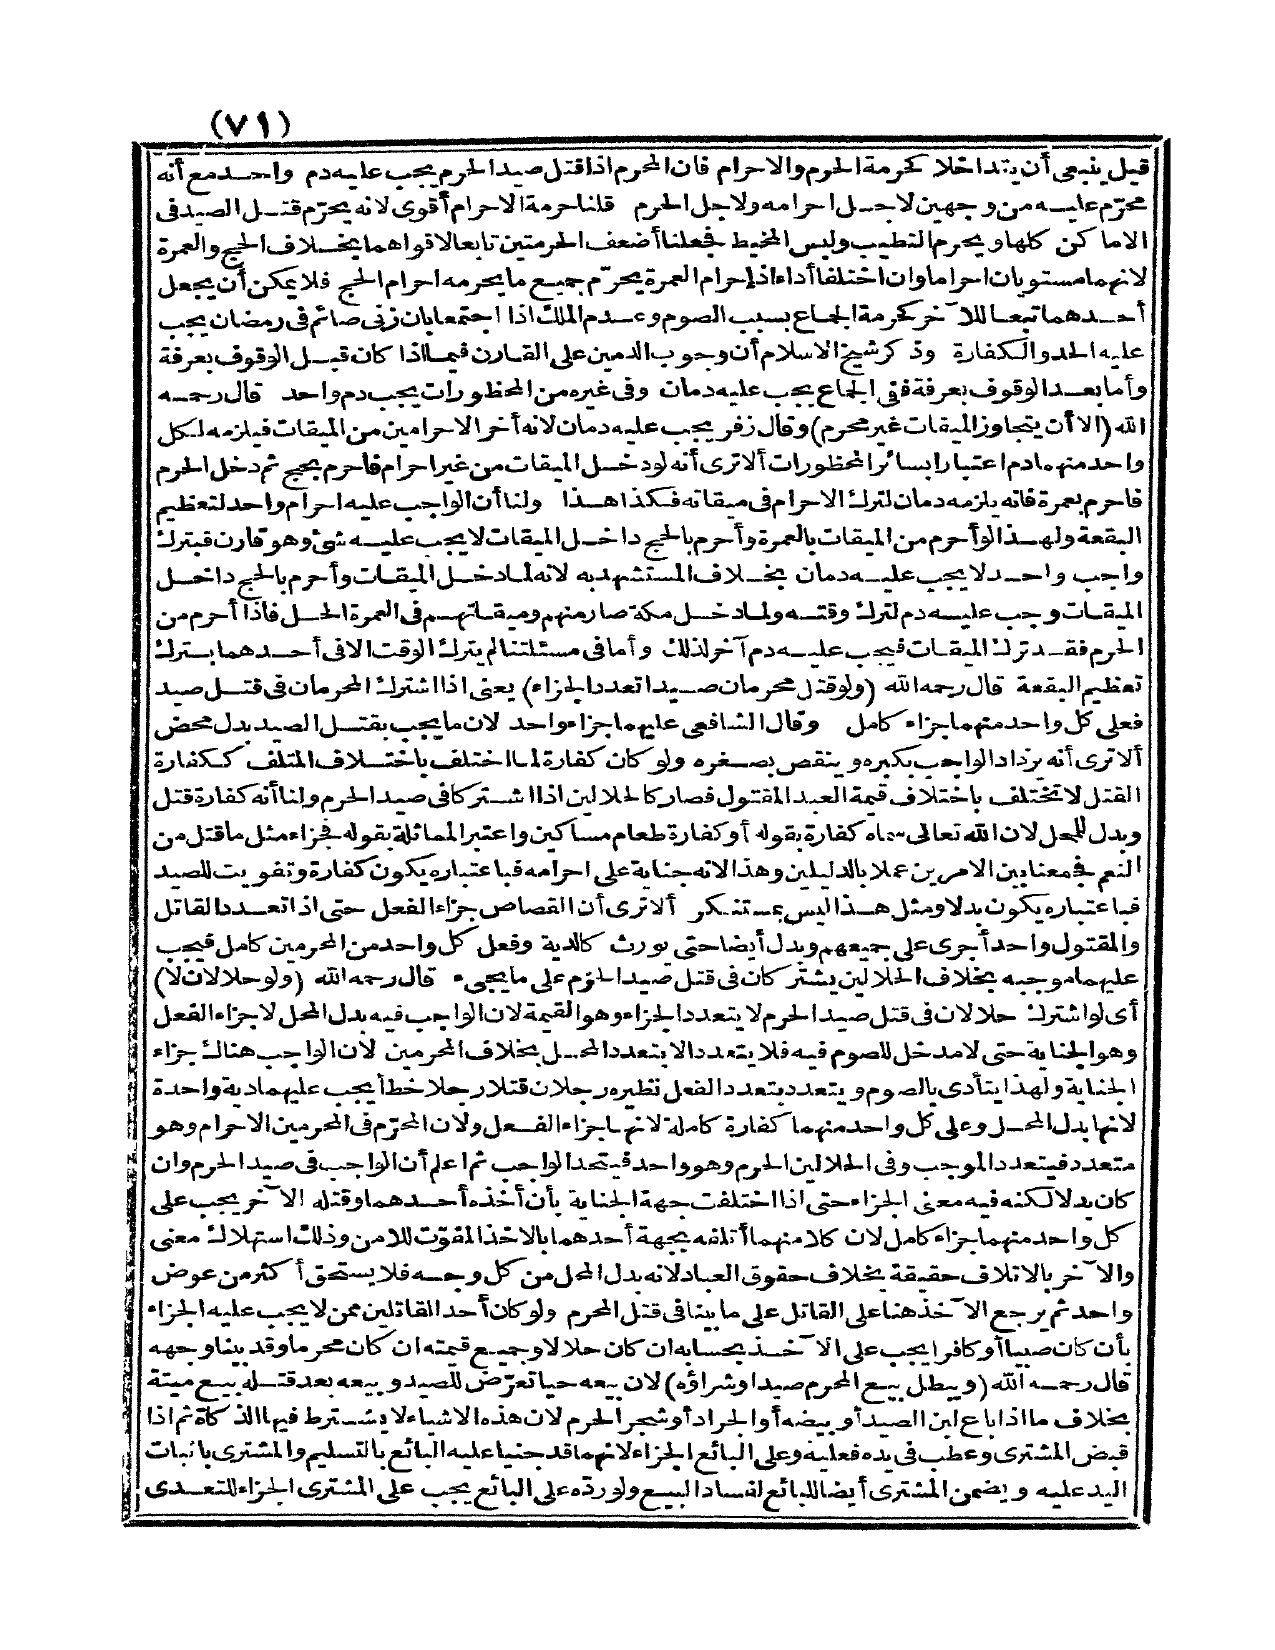 (٧١)
قيل ينبغي أن يتداخلا كحرمة الحرم والاحرام فان المحرم اذا قتل صيد الحرم يجب عليه دم واحد مع أنه
محرّم عليه من وجهين لاجل احرامه ولاجل الحرم قلنا حرمة الاحرام أقوى لانه يحرّم قتل الصيد فى
الاماكن كلها ويحرم التطيب ولبس المخيط فجعلنا أضعف الحرمتين تابعا لاقواهما بخلاف الحج والعمرة
لانهما مستويان احراما وان اختلفا أداء اذ احرام العمرة يحرّم جميع ما يحرمه احرام الحج فلا يمكن أن يجعل
أحدهما تبعا للآخر كحرمة الجماع بسبب الصوم وعدم الملك اذا اجتمعا بان زنى صائم فى رمضان يجب
عليه الحد والكفارة وذكر شيخ الاسلام أن وجوب الدمين على القارن فيما اذا كان قبل الوقوف بعرفة
وأما بعد الوقوف بعرفة ففى الجماع يجب عليه دمان وفى غيره من المحظورات يجب دم واحد قال رحمه
الله (الا أن يتجاوز الميقات غير محرم) وقال زفر يجب عليه دمان لانه أخر الاحرامين من الميقات فيلزمه لكل
واحد منهما دم اعتبارا بسائر المحظورات ألا ترى أنه لو دخل الميقات من غير احرام فأحرم بحج ثم دخل الحرم
فأحرم بعمرة فانه يلزمه دمان لترك الاحرام فى ميقاته فكذا هذا ولنا أن الواجب عليه احرام واحد لتعظيم
البقعة ولهذا لو أحرم من الميقات بالعمرة وأحرم بالحج داخل الميقات لا يجب عليه شئ وهو قارن فبترك
واجب واحد لا يجب عليه دمان بخلاف المستشهد به لانه لما دخل الميقات وأحرم بالحج داخل
الميقات وجب عليه دم لترك وقته ولما دخل مكة صار منهم وميقاتهم فى العمرة الحل فاذا أحرم من
الحرم فقد ترك الميقات فيجب عليه دم آخر لذلك وأما فى مسئلتنا لم يترك الوقت الا فى أحدهما بترك
تعظيم البقعة قال رحمه الله (ولو قتل محرمان صيدا تعدد الجزاء) يعنى اذا اشترك المحرمان فى قتل صيد
فعلى كل واحد منهما جزاء كامل وقال الشافعى عليهما جزاء واحد لان ما يجب بقتل الصيد بدل محض
ألا ترى أنه يزداد الواجب بكبره وينقص بصغره ولو كان كفارة لما اختلف باختلاف المتلف ككفارة
القتل لا تختلف باختلاف قيمة العبد المقتول فصار كالحلالين اذا اشتركا فى صيد الحرم ولنا أنه كفارة قتل
وبدل للمحل لان الله تعالى سماه كفارة بقوله أو كفارة طعام مساكين واعتبر المماثلة بقوله فجزاء مثل ما قتل من
النعم فجمعنا بين الامرين عملا بالدليلين وهذا لانه جناية على احرامه فباعتباره يكون كفارة وتفويت للصيد
فباعتباره يكون بدلا ومثل هذا ليس بمستنكر ألا ترى أن القصاص جزاء الفعل حتى اذا تعدد القاتل
والمقتول واحد أجرى على جميعهم وبدل أيضا حتى يورث كالدية وفعل كل واحد من المحرمين كامل فيجب
عليهما موجبه بخلاف الحلالين يشتركان فى قتل صيد الحرم على ما يجىء قال رحمه الله (ولو حلالان لا)
أى لو اشترك حلالان فى قتل صيد الحرم لا يتعدد الجزاء وهو القيمة لان الواجب فيه بدل المحل لا جزاء الفعل
وهو الجناية حتى لا مدخل للصوم فيه فلا يتعدد الا بتعدد المحل بخلاف المحرمين لان الواجب هناك جزاء
الجناية ولهذا يتأدى بالصوم ويتعدد بتعدد الفعل نظيره رجلان قتلا رجلا خطأ يجب عليهما دية واحدة
لانها بدل المحل وعلى كل واحد منهما كفارة كاملة لانها جزاء الفعل ولان المحرّم فى المحرمين الاحرام وهو
متعدد فيتعدد الموجب وفى الحلالين الحرم وهو واحد فيتحد الواجب ثم اعلم أن الواجب فى صيد الحرم وان
كان بدلا لكنه فيه معنى الجزاء حتى اذا اختلفت جهة الجناية بأن أخذه أحدهما وقتله الآخر يجب على
كل واحد منهما جزاء كامل لان كلا منهما أتلفه بجهة أحدهما بالاخذ المفوّت للامن وذلك استهلاك معنى
والآخر بالاتلاف حقيقة بخلاف حقوق العباد لانه بدل المحل من كل وجه فلا يستحق أكثر من عوض
واحد ثم يرجع الآخذ هنا على القاتل على ما بينا فى قتل المحرم ولو كان أحد القاتلين ممن لا يجب عليه الجزاء
بأن كان صبيا أو كافرا يجب على الآخذ بحسابه ان كان حلالا وجميع قيمته ان كان محرما وقد بينا وجهه
قال رحمه الله (ويبطل بيع المحرم صيدا وشراؤه) لان بيعه حيا تعرّض للصيد وبيعه بعد قتله بيع ميتة
بخلاف ما اذا باع لبن الصيد أو بيضه أو الجراد أو شجر الحرم لان هذه الاشياء لا يشترط فيها الذكاة ثم اذا
قبض المشترى وعطب فى يده فعليه وعلى البائع الجزاء لانهما قد جنيا عليه البائع بالتسليم والمشترى باثبات
اليد عليه ويضمن المشترى أيضا للبائع لفساد البيع ولو رده على البائع يجب على المشترى الجزاء للتعدى